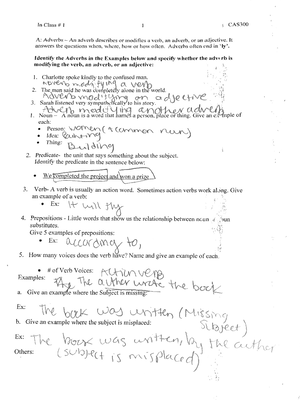 In Class # 1 1 CAS300
A: Adverbs – An adverb describes or modifies a verb, an adverb, or an adjective. It
answers the questions when, where, how or how often. Adverbs often end in "ly".
Identify the Adverbs in the Examples below and specify whether the adverb is
modifying the verb, an adverb, or an adjective:
1. Charlotte spoke kindly to the confused man.
Adverb modifying a verb
2. The man said he was completely alone in the world.
Adverb modifying an adjective
3. Sarah listened very sympathetically to his story.
Adverb modifying another adverb
1. Noun – A noun is a word that names a person, place or thing. Give an example of
each:
• Person: women (a common noun)
• Idea:
• Thing: Building
2. Predicate- the unit that says something about the subject.
Identify the predicate in the sentence below:
• We completed the project and won a prize.
3. Verb- A verb is usually an action word. Sometimes action verbs work along. Give
an example of a verb:
• Ex: It will fly
4. Prepositions - Little words that show us the relationship between noun
substitutes.
Give 5 examples of prepositions:
• Ex: according to,
5. How many voices does the verb have? Name and give an example of each.
• # of Verb Voices: Action verb
Examples: The auther wrote the book
a. Give an example where the Subject is missing:
Ex: The book was written (Missing
Subject)
b. Give an example where the subject is misplaced:
Ex: The book was written, by the auther
Others: (subject is misplaced)